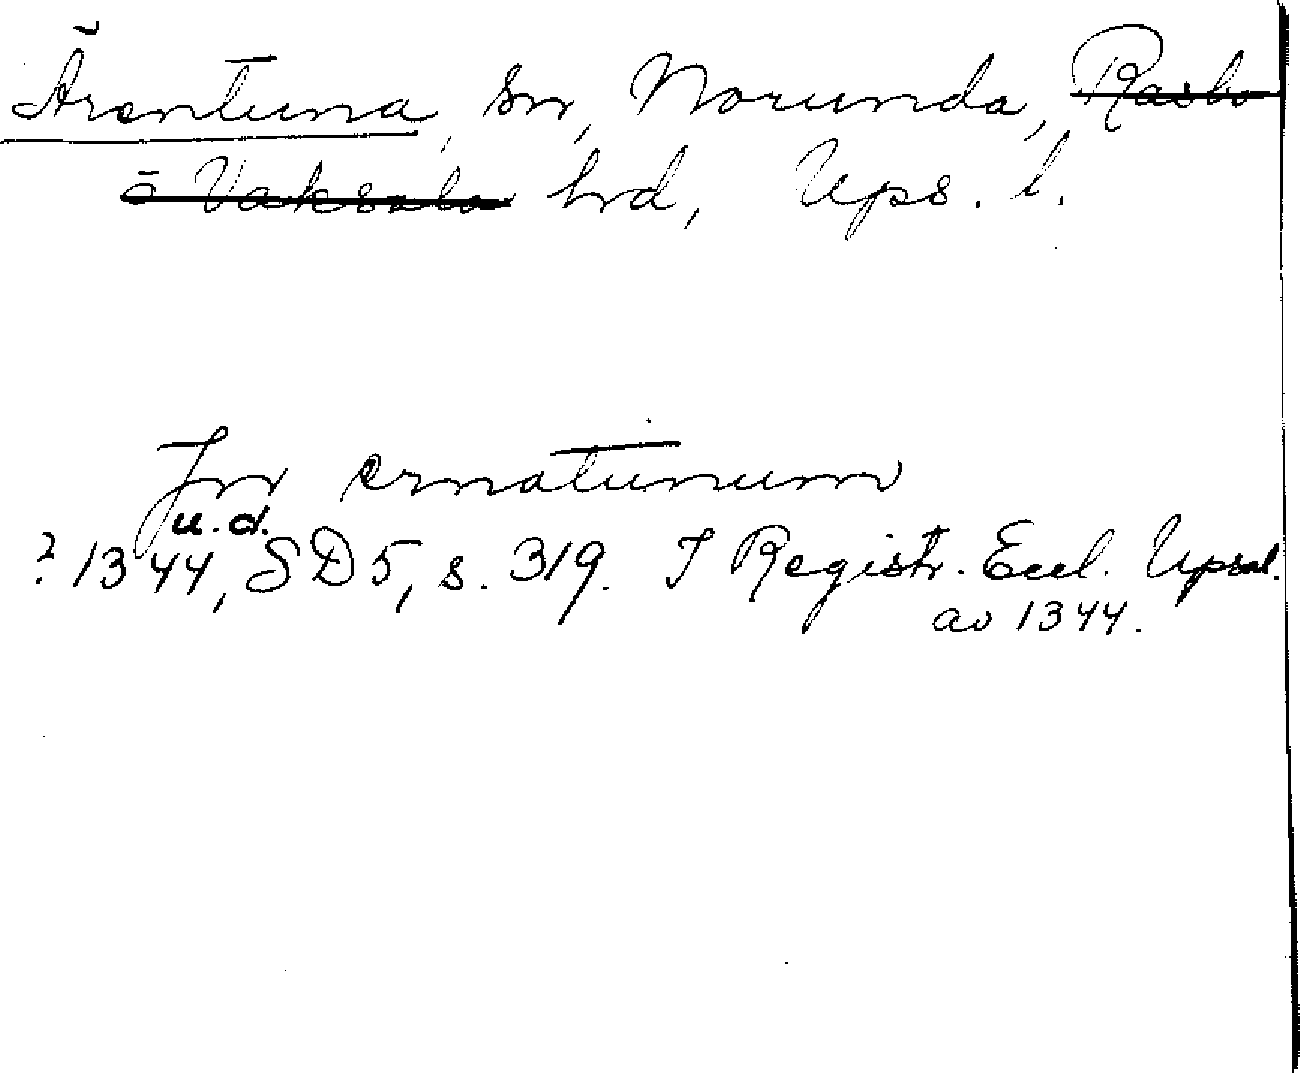 Ärentuna, sn, Norunda, Rasbo
o Vaksala hrd, Ups. l.
Jn ernatunum
u. d.
? 1344, SD 5, s. 319. I Registr. Eccl. Upsal.
av 1344.